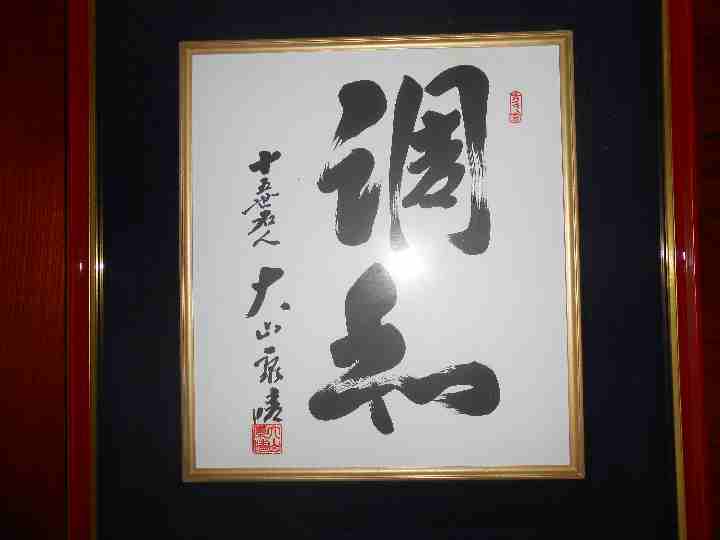 調和
十五世名人
大山康晴